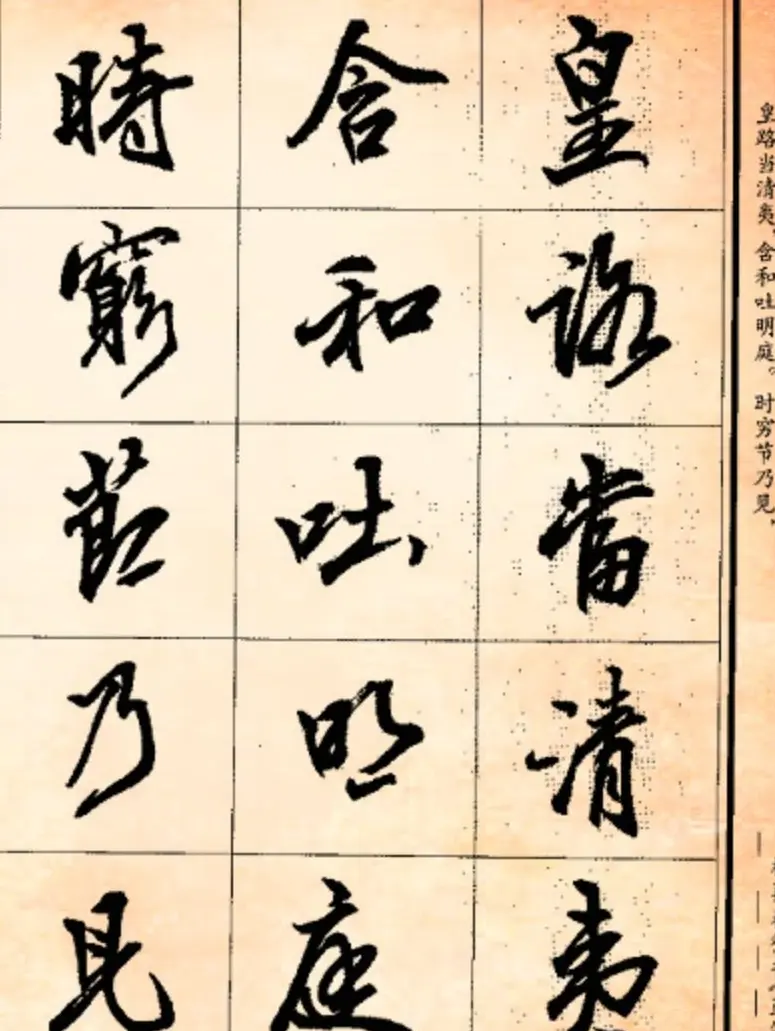 皇路当清夷，含和吐明庭。时穷节乃见，
皇路當清夷
含和吐明庭
時窮節乃見